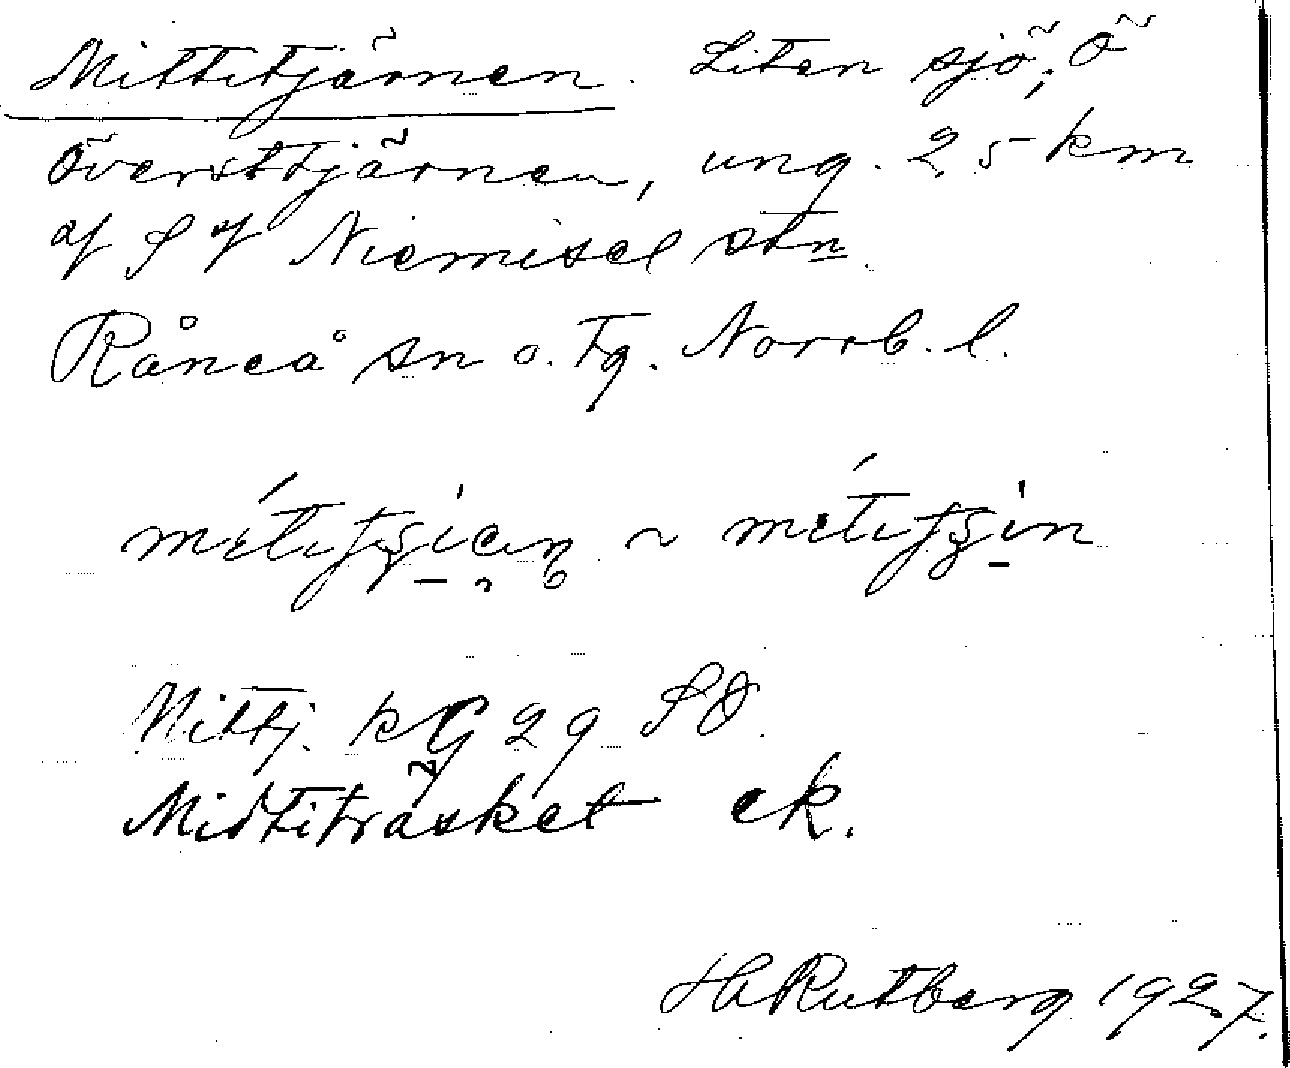 Mittitjärnen. Liten sjö, Ö
Översttjärnen, ung. 2,5 km
af S f Niemisel stn.
Råneå sn o. tg. Norrb. l.
Mittj. kG 29 SO.
Midtiträsket ek.
H Rutberg 1927.